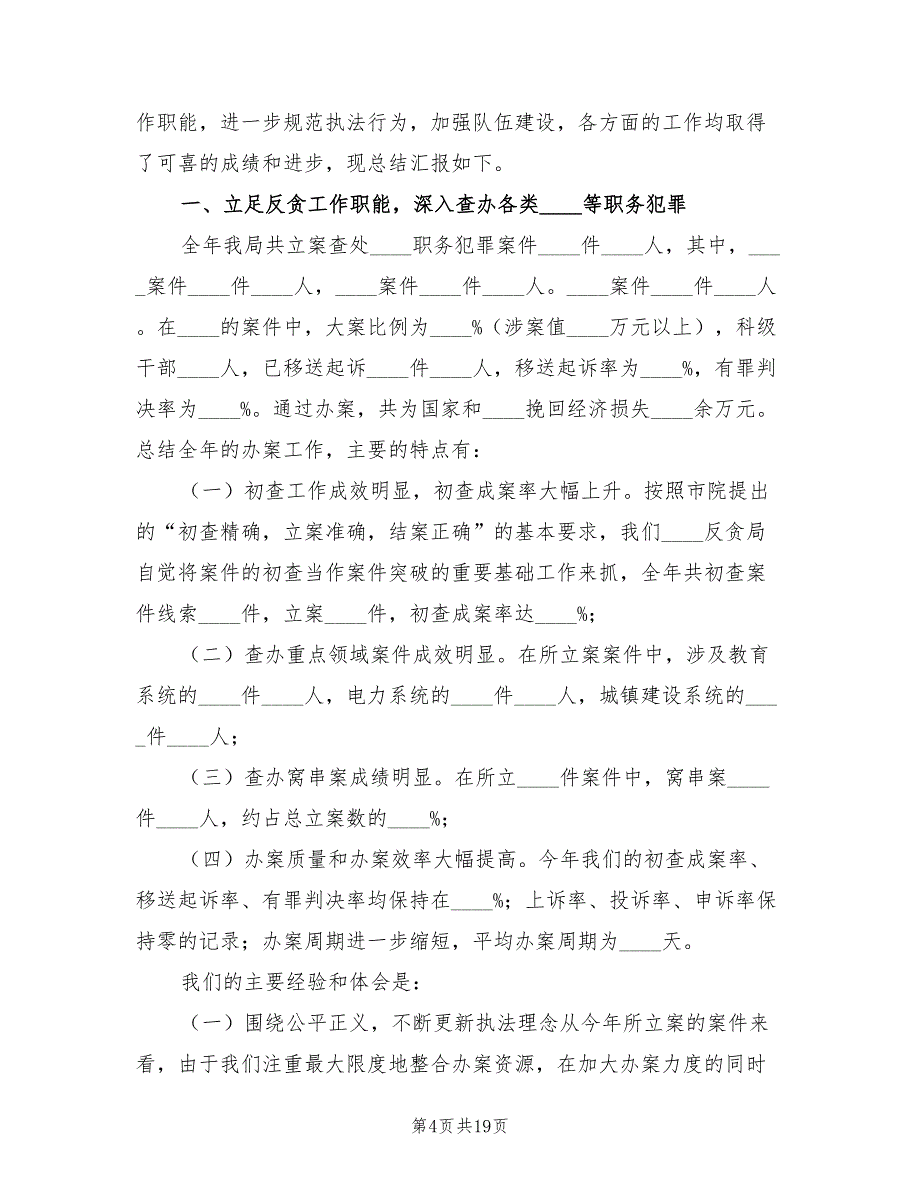 作职能，进一步规范执法行为，加强队伍建设，各方面的工作均取得
了可喜的成绩和进步，现总结汇报如下。
一、立足反贪工作职能，深入查办各类____等职务犯罪
全年我局共立案查处____职务犯罪案件____件____人，其中，___
_案件____件____人，____案件____件____人。____案件____件____人
。在____的案件中，大案比例为____%（涉案值____万元以上），科级
干部____人，已移送起诉____件____人，移送起诉率为____%，有罪判
决率为____%。通过办案，共为国家和____挽回经济损失____余万元。
总结全年的办案工作，主要的特点有：
（一）初查工作成效明显，初查成案率大幅上升。按照市院提出
的“初查精确，立案准确，结案正确”的基本要求，我们____反贪局
自觉将案件的初查当作案件突破的重要基础工作来抓，全年共初查案
件线索____件，立案____件，初查成案率达____%；
（二）查办重点领域案件成效明显。在所立案案件中，涉及教育
系统的____件____人，电力系统的____件____人，城镇建设系统的___
_件____人；
（三）查办窝串案成绩明显。在所立____件案件中，窝串案____
件____人，约占总立案数的____%；
（四）办案质量和办案效率大幅提高。今年我们的初查成案率、
移送起诉率、有罪判决率均保持在____%；上诉率、投诉率、申诉率保
持零的记录；办案周期进一步缩短，平均办案周期为____天。
我们的主要经验和体会是：
（一）围绕公平正义，不断更新执法理念从今年所立案的案件来
看，由于我们注重最大限度地整合办案资源，在加大办案力度的同时
第4页共19页